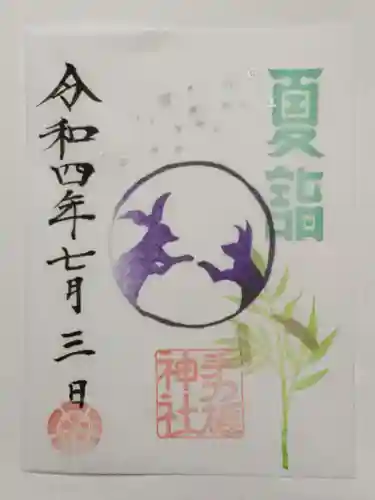 夏詣
令和四年七月三日
手力雄
神社